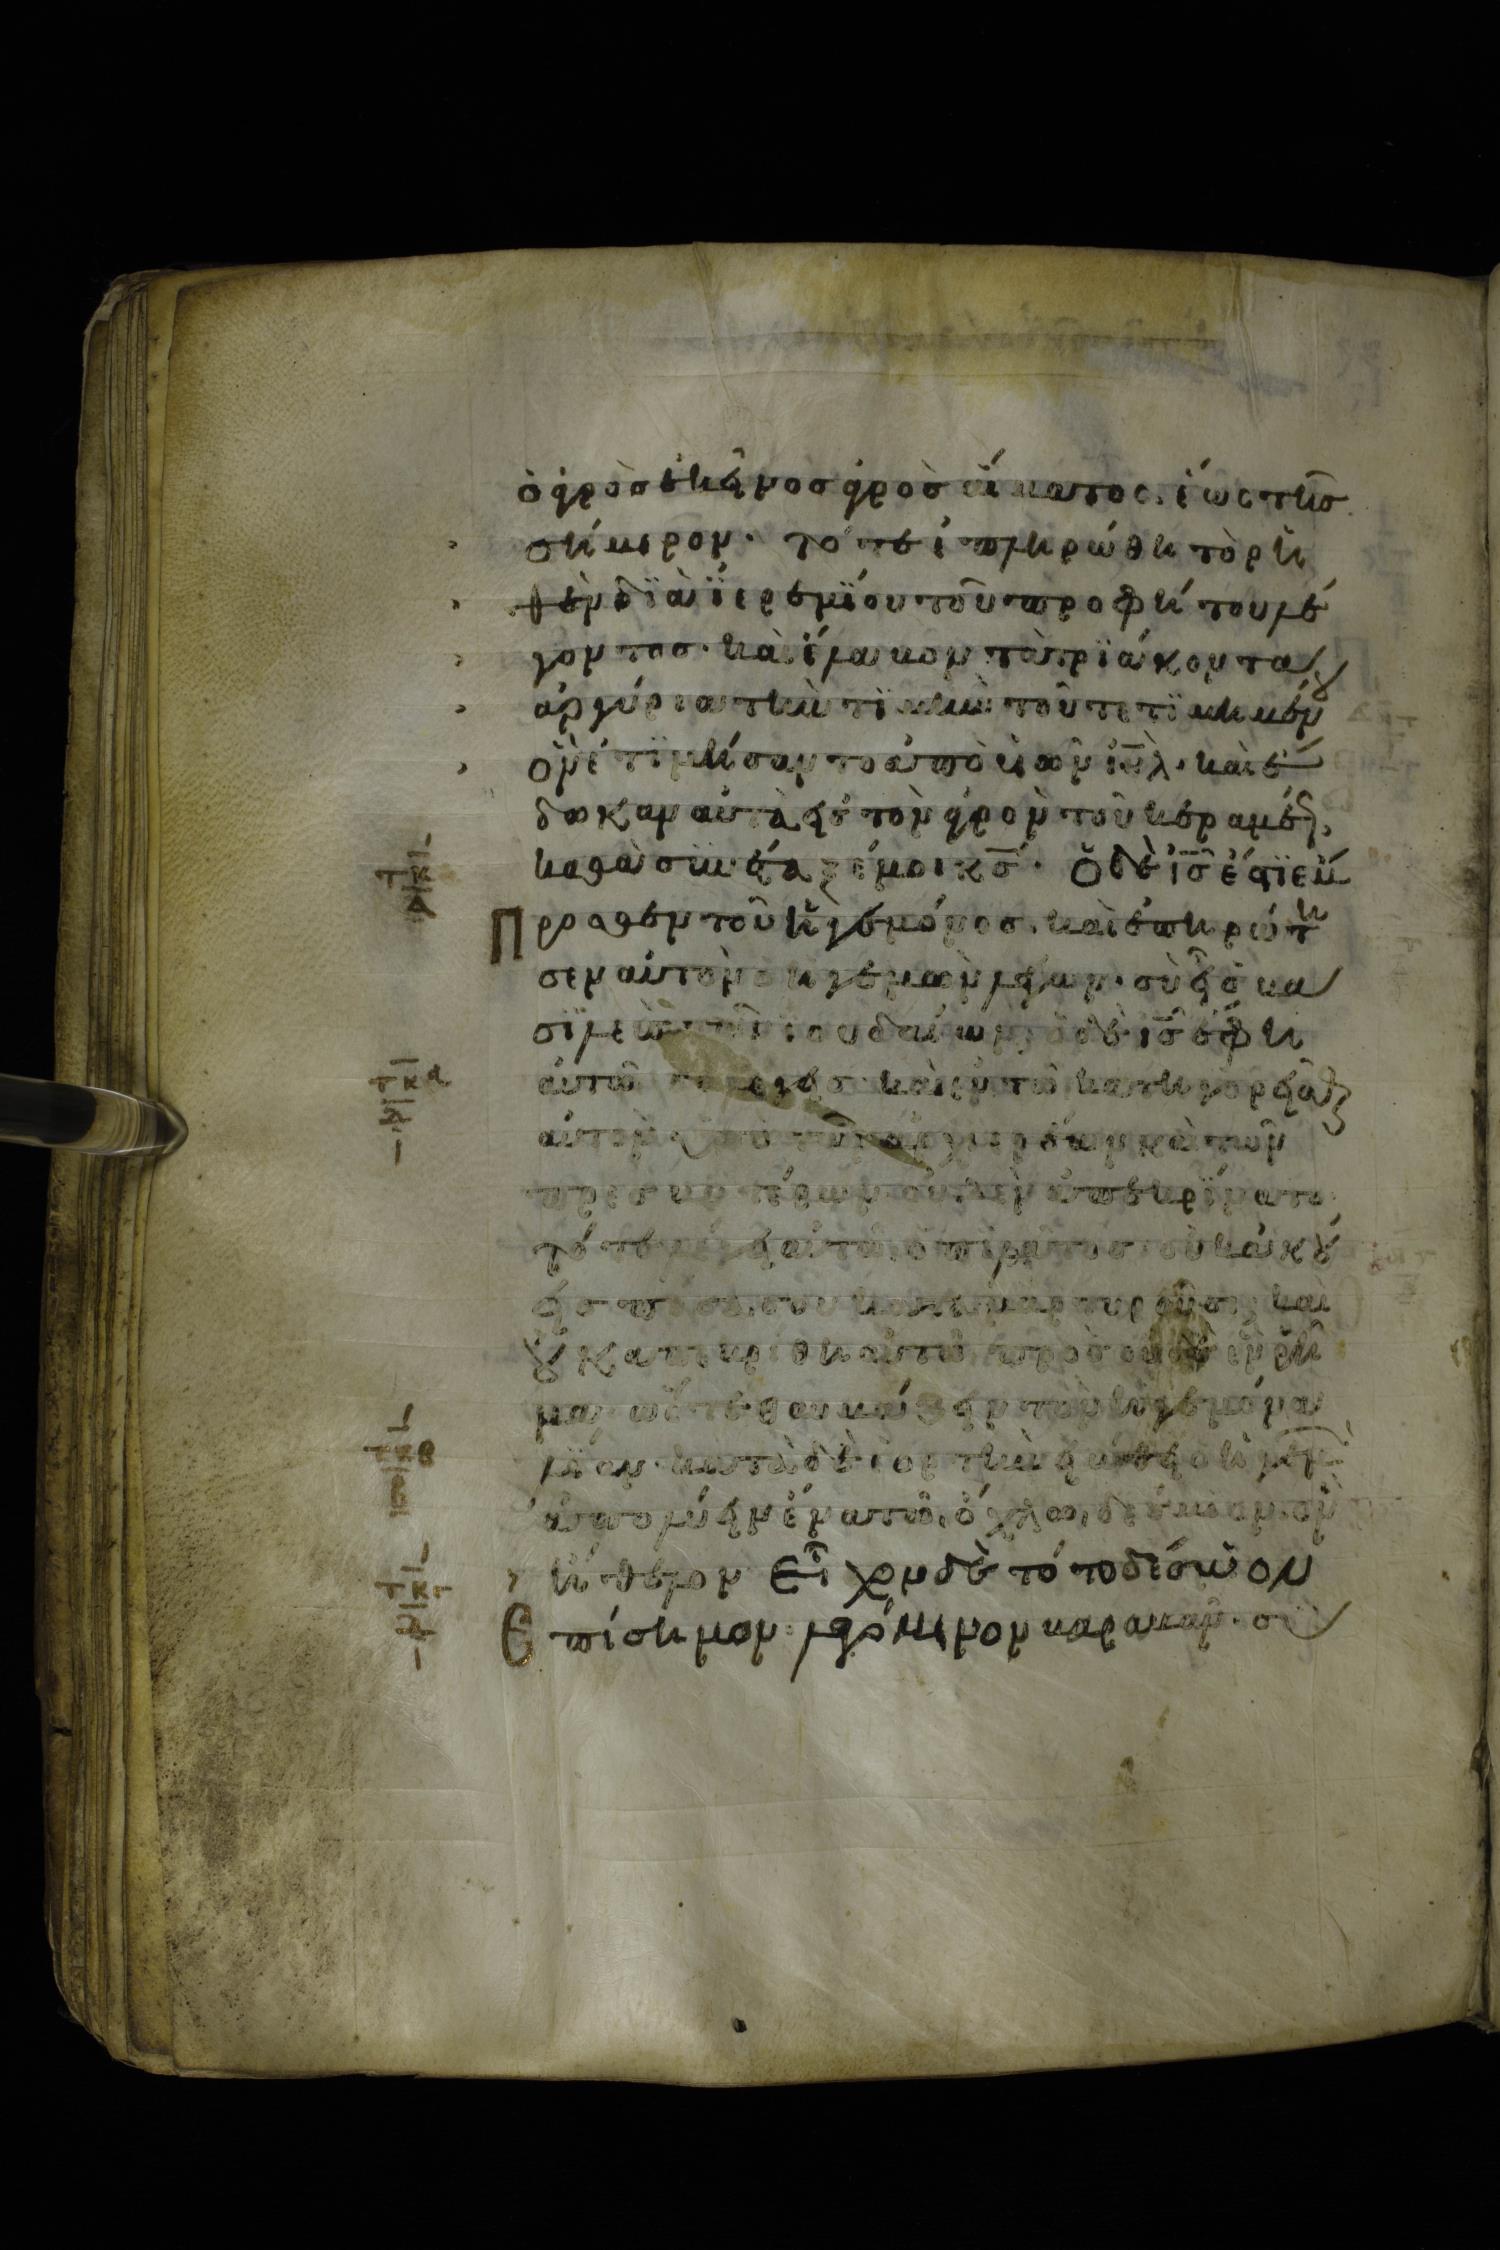 ὁ ἀγρὸσ ἐκεῖνοσ ἀγρὸσ αἵματος. ἕως τῆσ
σήμερον. τότε ἐπληρώθη τὸ ρη
θὲν διὰ ϊερεμΐου τοῦ προφήτου λέ
γοντοσ. καὶ ἔλαβον τὰ τρϊάκοντα
ἀργύρια τὴν τϊμὴν τοῦ τετϊμημένου
ὃν ἐτϊμήσαντο ἀπὸ υἱῶν ιηλ. καὶ ἔ
δωκαν αὐτὰ εἰσ τὸν ἀγρὸν τοῦ κεραμέωσ,
καθὰ συνέταξέ μοι κσ. Ὁ δὲ ισ ἔστη ἔμ
προσθεν τοῦ ἡγεμόνοσ. καὶ ἐπηρώτη
σεν αὐτὸν ὁ ἡγεμὼν λέγων. σὺ εἶ ὁ βα
σϊλεὺσ τῶν ιουδαίων; ὁ δὲ ισ ἔφη
αὐτῶ σὺ λέγεισ. καὶ ἐν τῶ κατηγορεῖσθαι
αὐτὸν ὑπὸ τῶν ἀρχιερέων καὶ τῶν
πρεσβυτέρων οὐδὲν ἀπεκρίνατο.
τότε λέγει αὐτῶ ὁ πιλάτοσ. οὐκ ἀκού
εισ πόσα σου καταμαρτυροῦσι; καὶ
οὐκ ἀπεκρίθη αὐτῶ πρὸσ οὐδὲ ἓν ρῆ
μα. ὥστε θαυμάζειν τὸν ἡγεμόνα
λΐαν. κατὰ δὲ ἑορτὴν εἰώθει ὁ ἡγεμὼν
ἀπολύειν ἕνα τῶ ὄχλω, δέσμιον. ὃν
ἤθελον Εἶχον δὲ τότε δέσμιον
Επίσημον λεγόμενον βαραββᾶν. συ